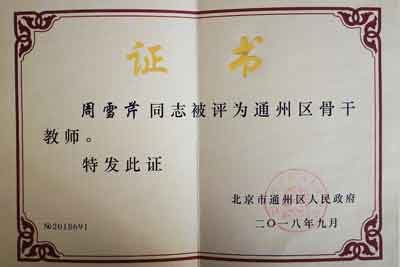 证书
周雪芹同志被评为通州区骨干
教师。
特发此证
北京市通州区人民政府
二〇一八年九月
№2018691